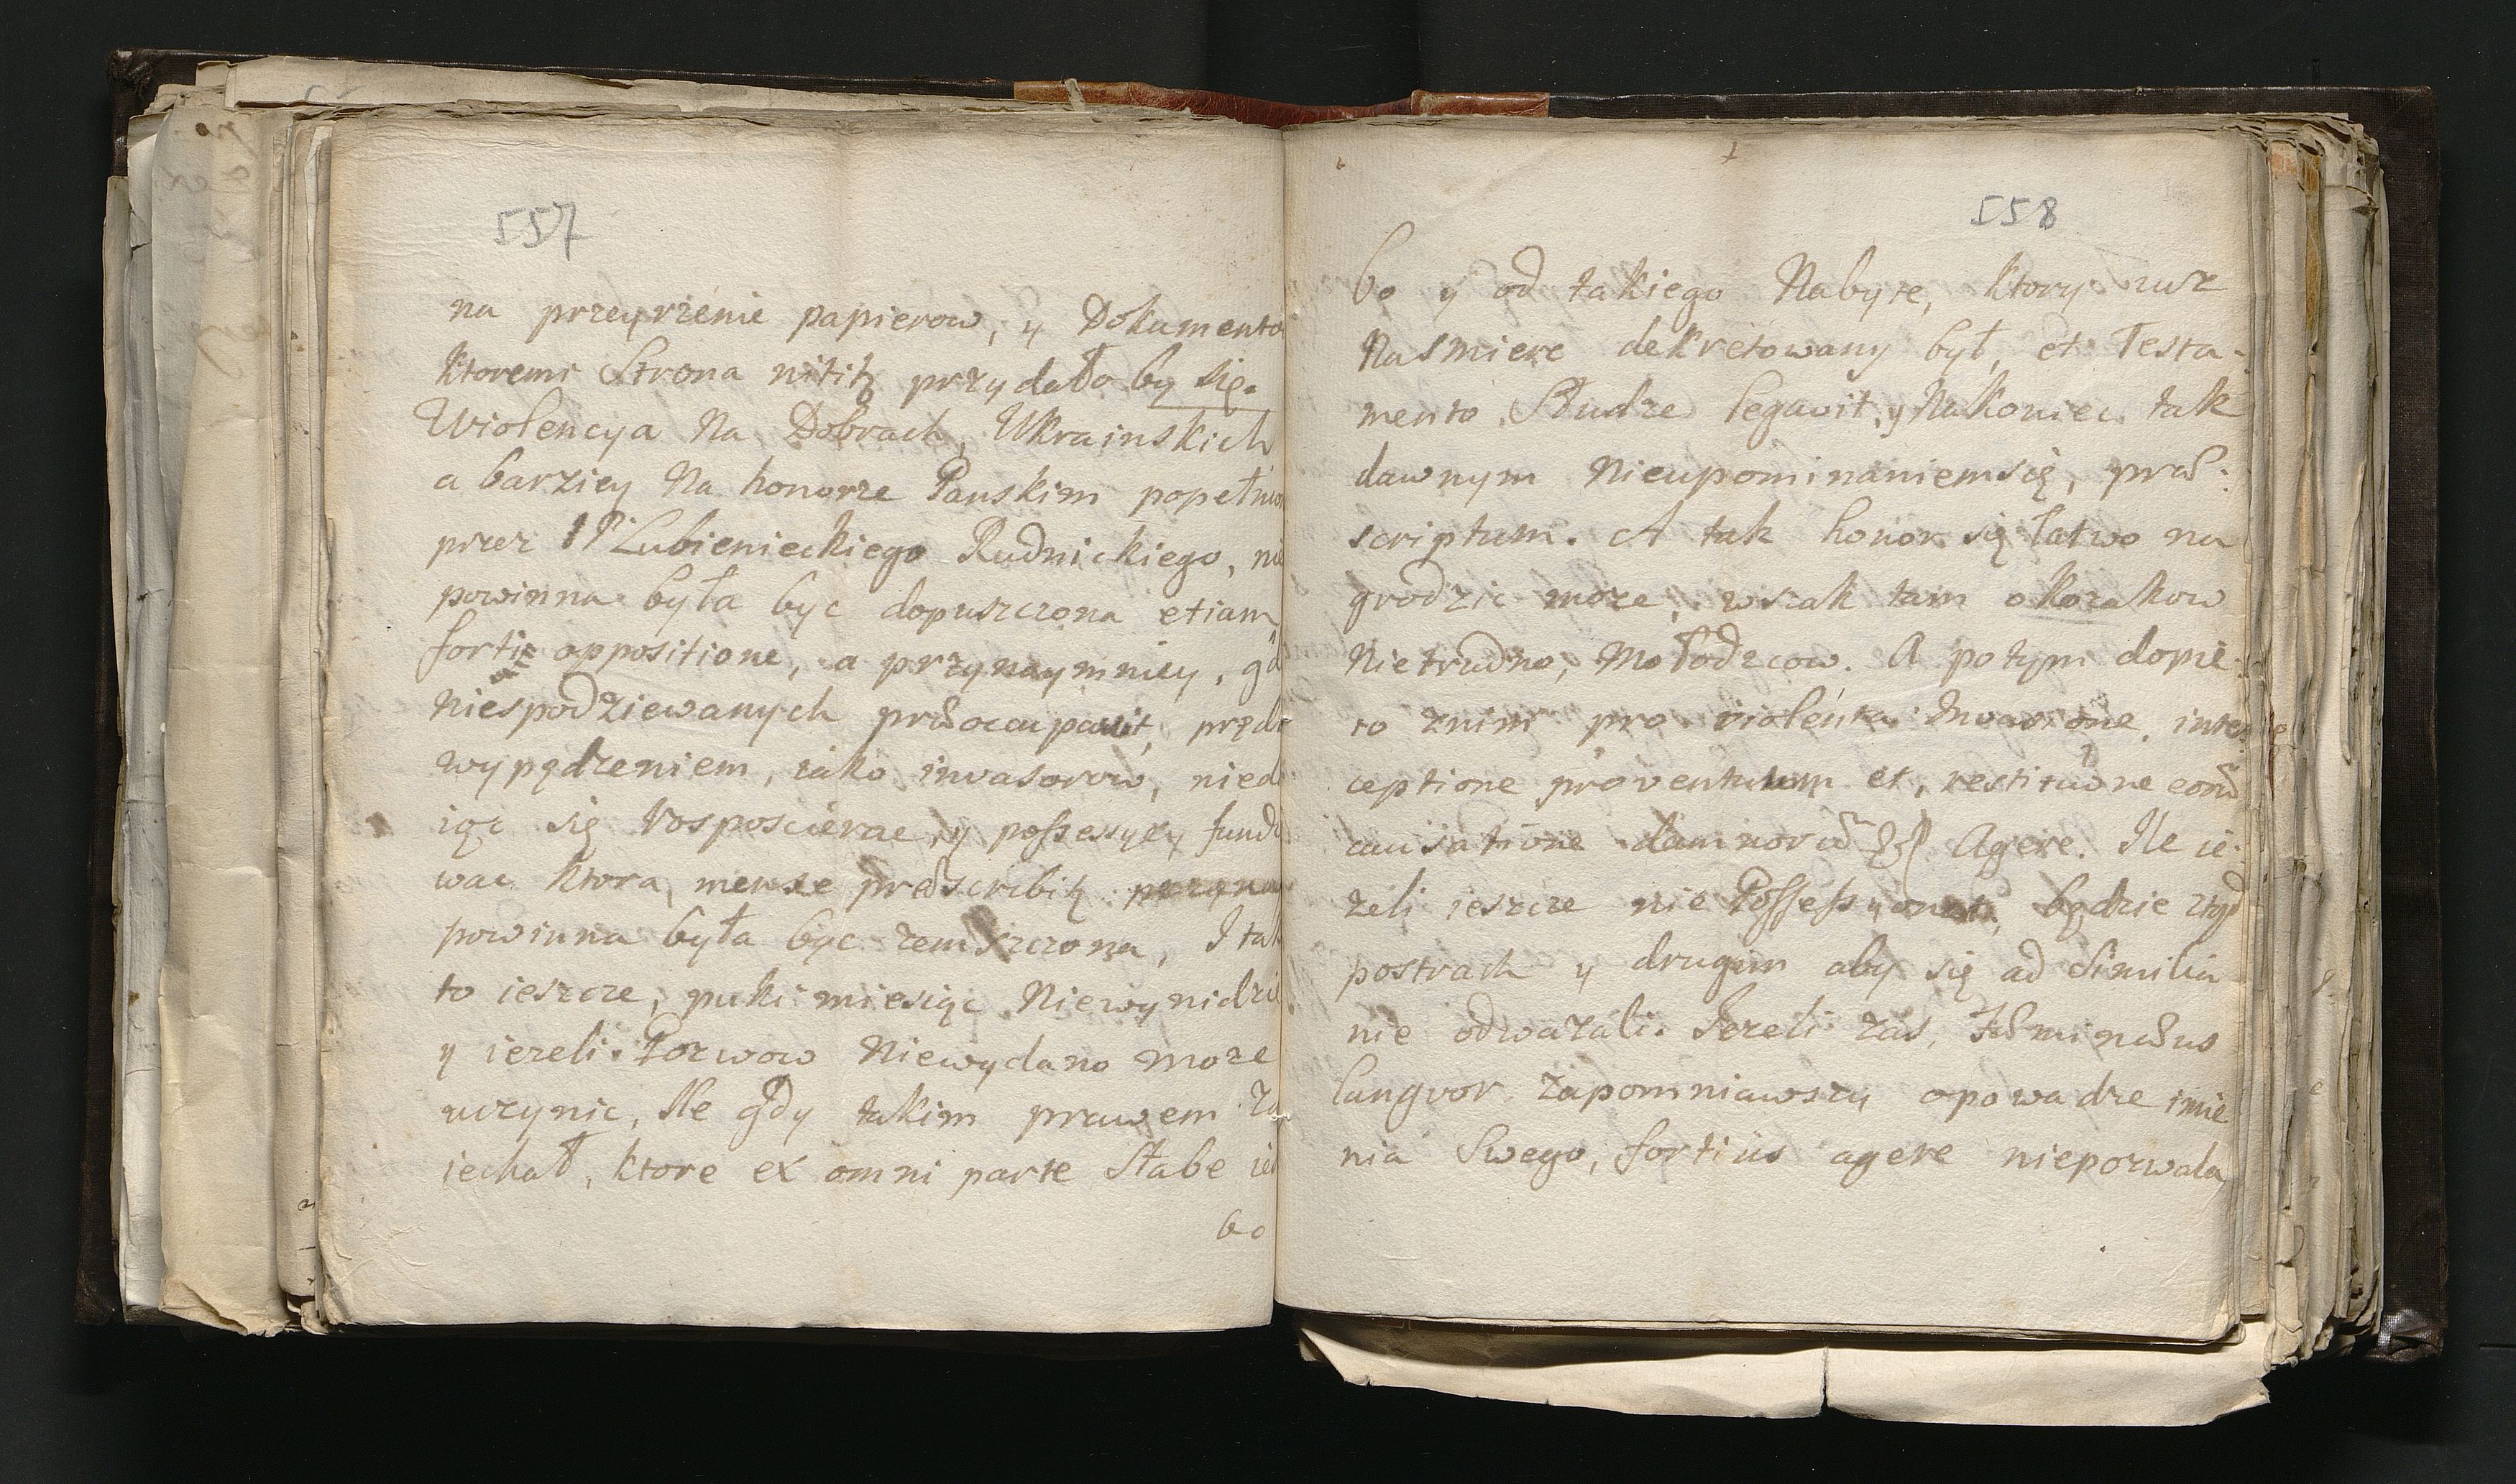 557
na przeyrzenie papierow, y Dokumento
ktoremi Strona nititz przydało by się.
Wiolencya Na Dobrach, Ukrainskich
a barziey Na honorze Panskim popełnio
przez IP Lubienieckiego Rudnickiego, nie
powinna była byc dopuszczona etiam
forti oppositione, a przynaymniey, gd
Niespodziewanych præoccupavit, prędk
wypędzeniem, iako invasorow, nieda
iąc się rosposcierac, y possessyey fundo
wac ktora, mense præscribitz
powinna była byc zemszczona, I tak
to ieszcze, puki miesiąc Niewynidzie
y iezeli Pozwow Niewydano moze
uczynic, Ile gdy takim prawem za
iechał, ktore ex omni parte Słabe ie
bo
558
bo y od takiego Nabyte, ktory iuz
Nasmierc dekretowany był, et Testa-
mento Studze legavit, y Nakoniec tak
dawnym Nieupominaniemsię, præ:
scriptum. A tak honor się łatwo na
grodzic moze, wszak tam o kozakow
Nietrudno, Mołodzcow. A potym dopie-
ro znim pro violenta Invasione, inter
ceptione proventuum et, restitutione eorū
causatione damnorum Agere. Ile ie-
zeli ieszcze nie Possessyonat, będzie ztąd
postrach y drugim aby się ad Similia
nie odwazali. Jezeli zas, fæminæus
langvor zapomniawszy opowadze imie
nia Swego, fortius agere niepozwala